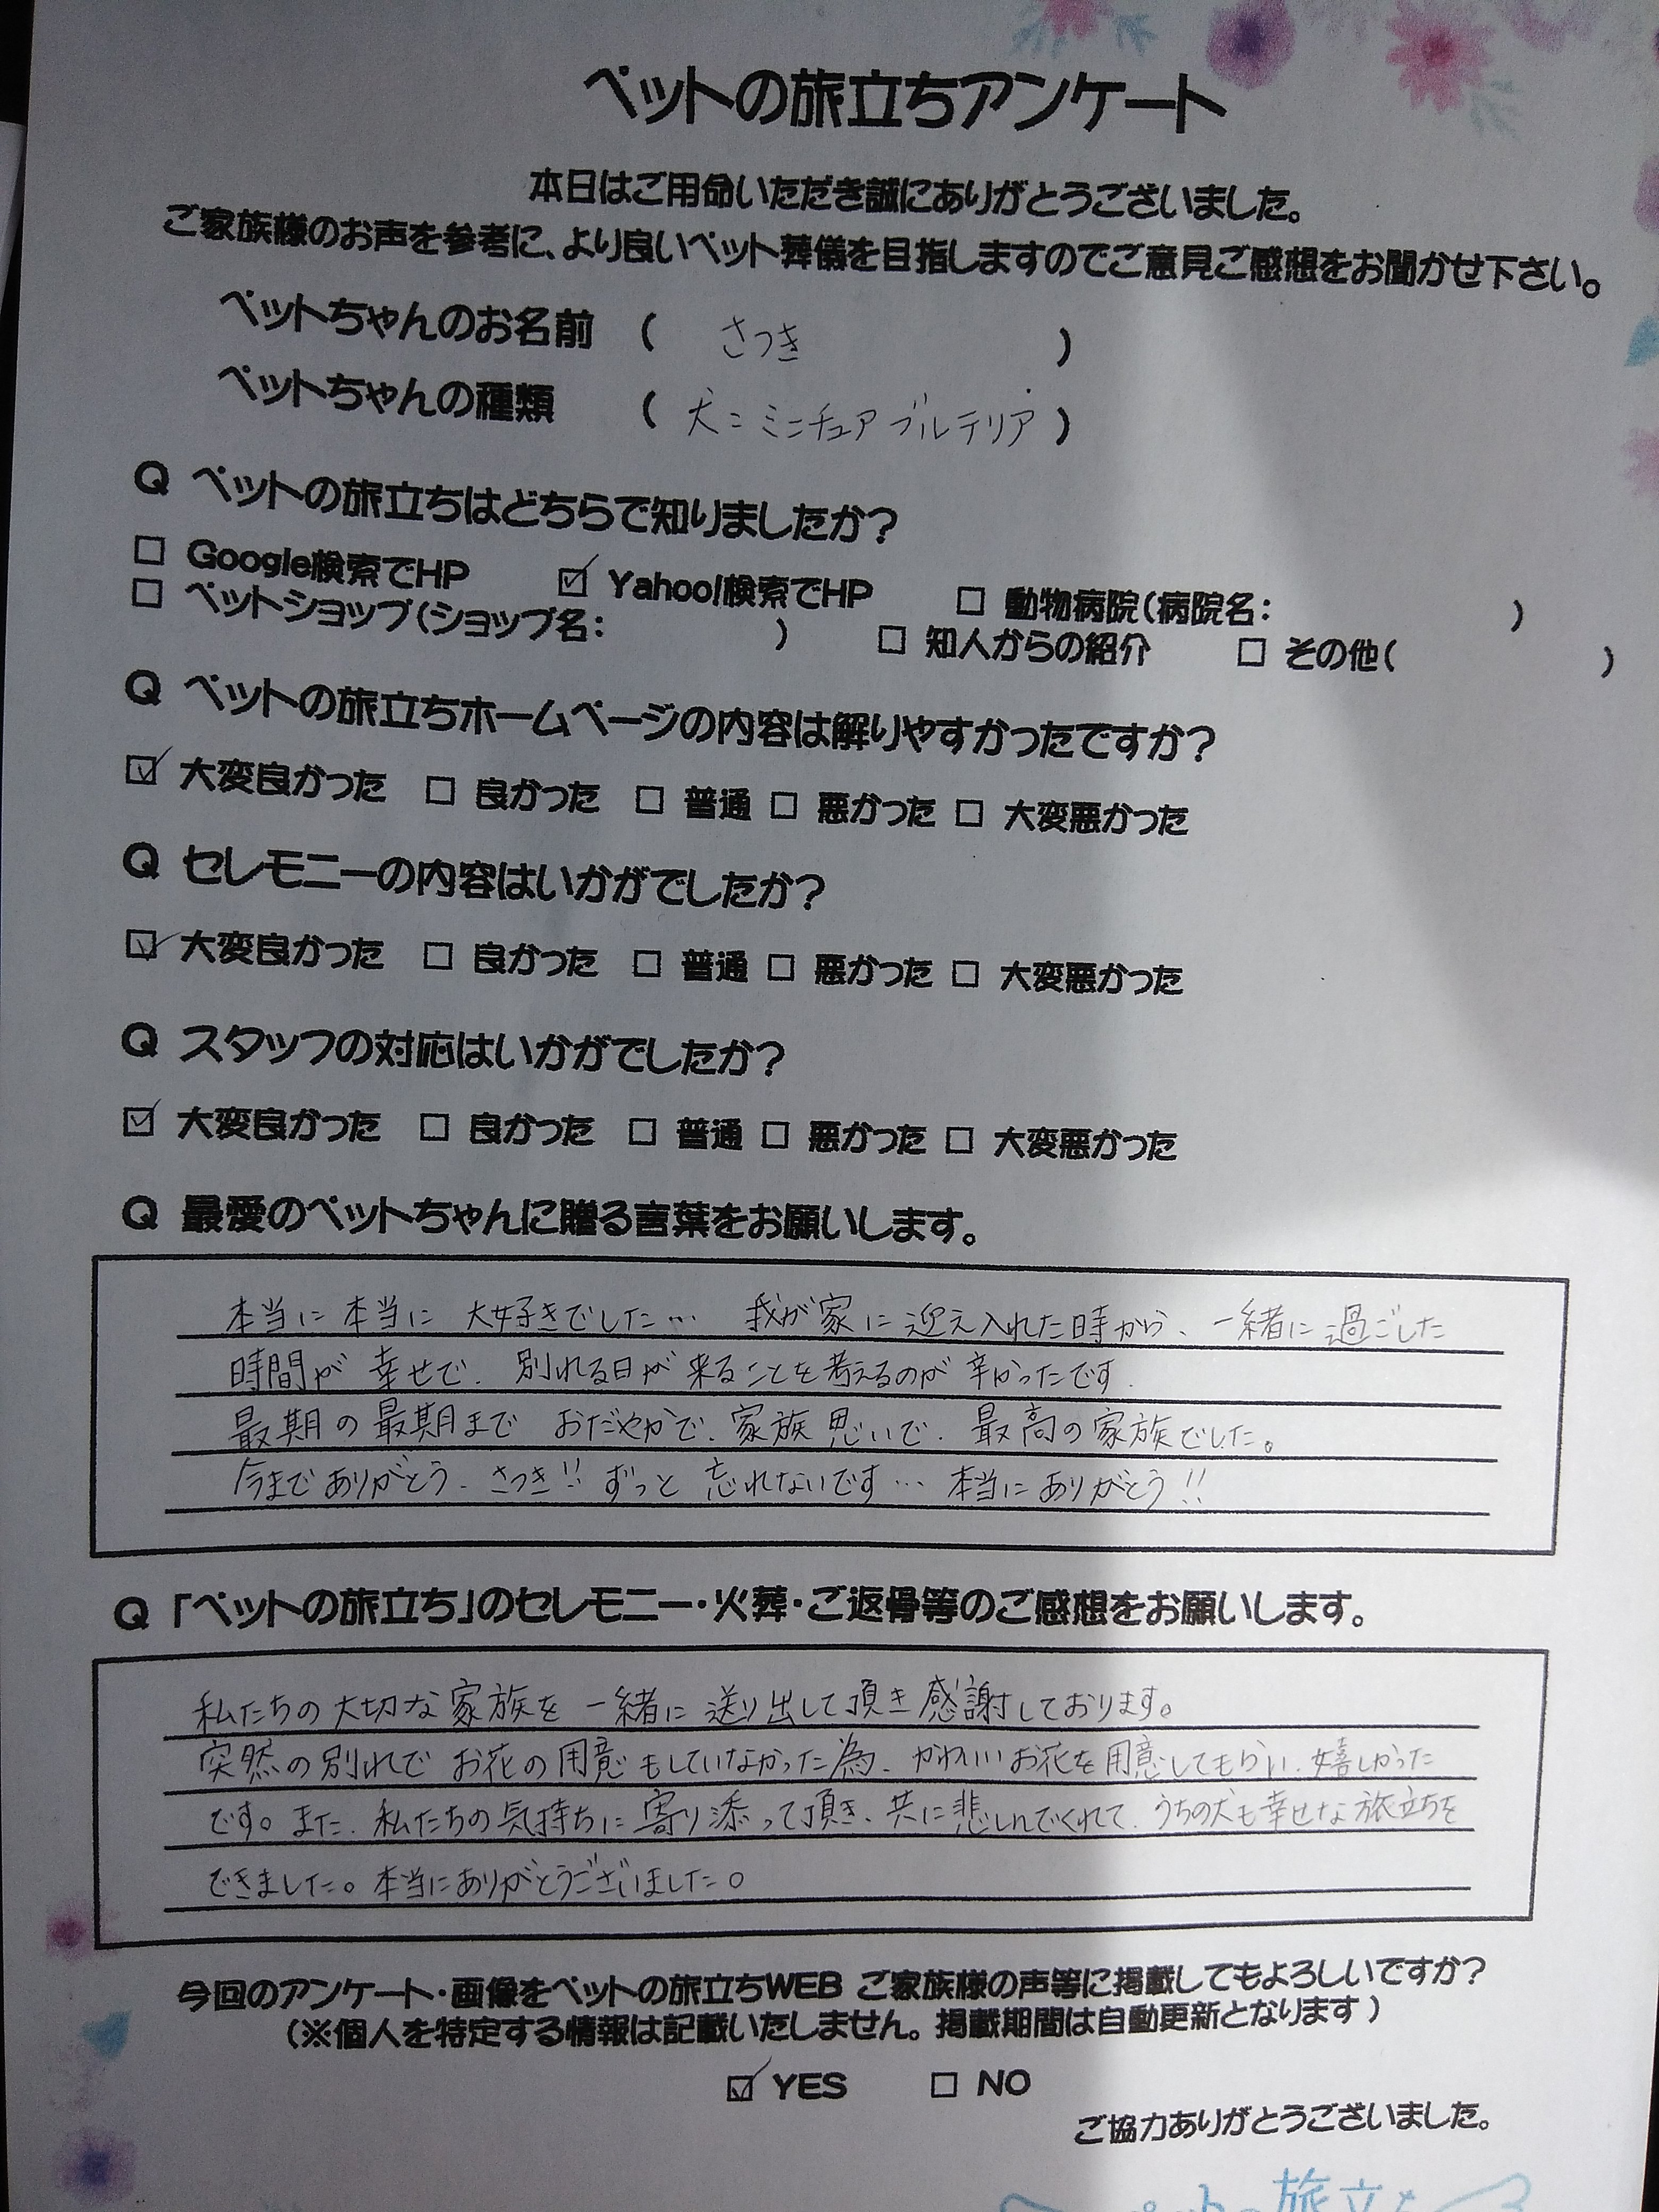 ペットの旅立ちアンケート
本日はご用命いただき誠にありがとうございました。
ご家族様のお声を参考に、より良いペット葬儀を目指しますのでご意見ご感想をお聞かせ下さい。
ペットちゃんのお名前 ( さつき )
ペットちゃんの種類 ( 犬:ミニチュアブルテリア )
Q ペットの旅立ちはどちらで知りましたか?
□ Google検索でHP ☑ Yahoo!検索でHP □ 動物病院(病院名: )
□ ペットショップ(ショップ名: ) □ 知人からの紹介 □ その他( )
Q ペットの旅立ちホームページの内容は解りやすかったですか?
☑ 大変良かった □ 良かった □ 普通 □ 悪かった □ 大変悪かった
Q セレモニーの内容はいかがでしたか?
☑ 大変良かった □ 良かった □ 普通 □ 悪かった □ 大変悪かった
Q スタッフの対応はいかがでしたか?
☑ 大変良かった □ 良かった □ 普通 □ 悪かった □ 大変悪かった
Q 最愛のペットちゃんに贈る言葉をお願いします。
本当に本当に 大好きでした… 我が家に迎え入れた時から、一緒に過ごした
時間が幸せで、別れる日が来ることを考えるのが辛かったです.
最期の最期まで おだやかで、家族思いで、最高の家族でした。
今までありがとう、さつき!! ずっと 忘れないです… 本当にありがとう!!
Q 「ペットの旅立ち」のセレモニー・火葬・ご返骨等のご感想をお願いします。
私たちの大切な家族を一緒に送り出して頂き感謝しております。
突然の別れで お花の用意もしていなかった為、かわいいお花を用意してもらい、嬉しかった
です。また、私たちの気持ちに寄り添って頂き、共に悲しんでくれて、うちの犬も幸せな旅立ちを
できました。本当にありがとうございました。
今回のアンケート・画像をペットの旅立ちWEB ご家族様の声等に掲載してもよろしいですか?
(※個人を特定する情報は記載いたしません。掲載期間は自動更新となります)
☑ YES □ NO
ご協力ありがとうございました。
ペットの旅立ち